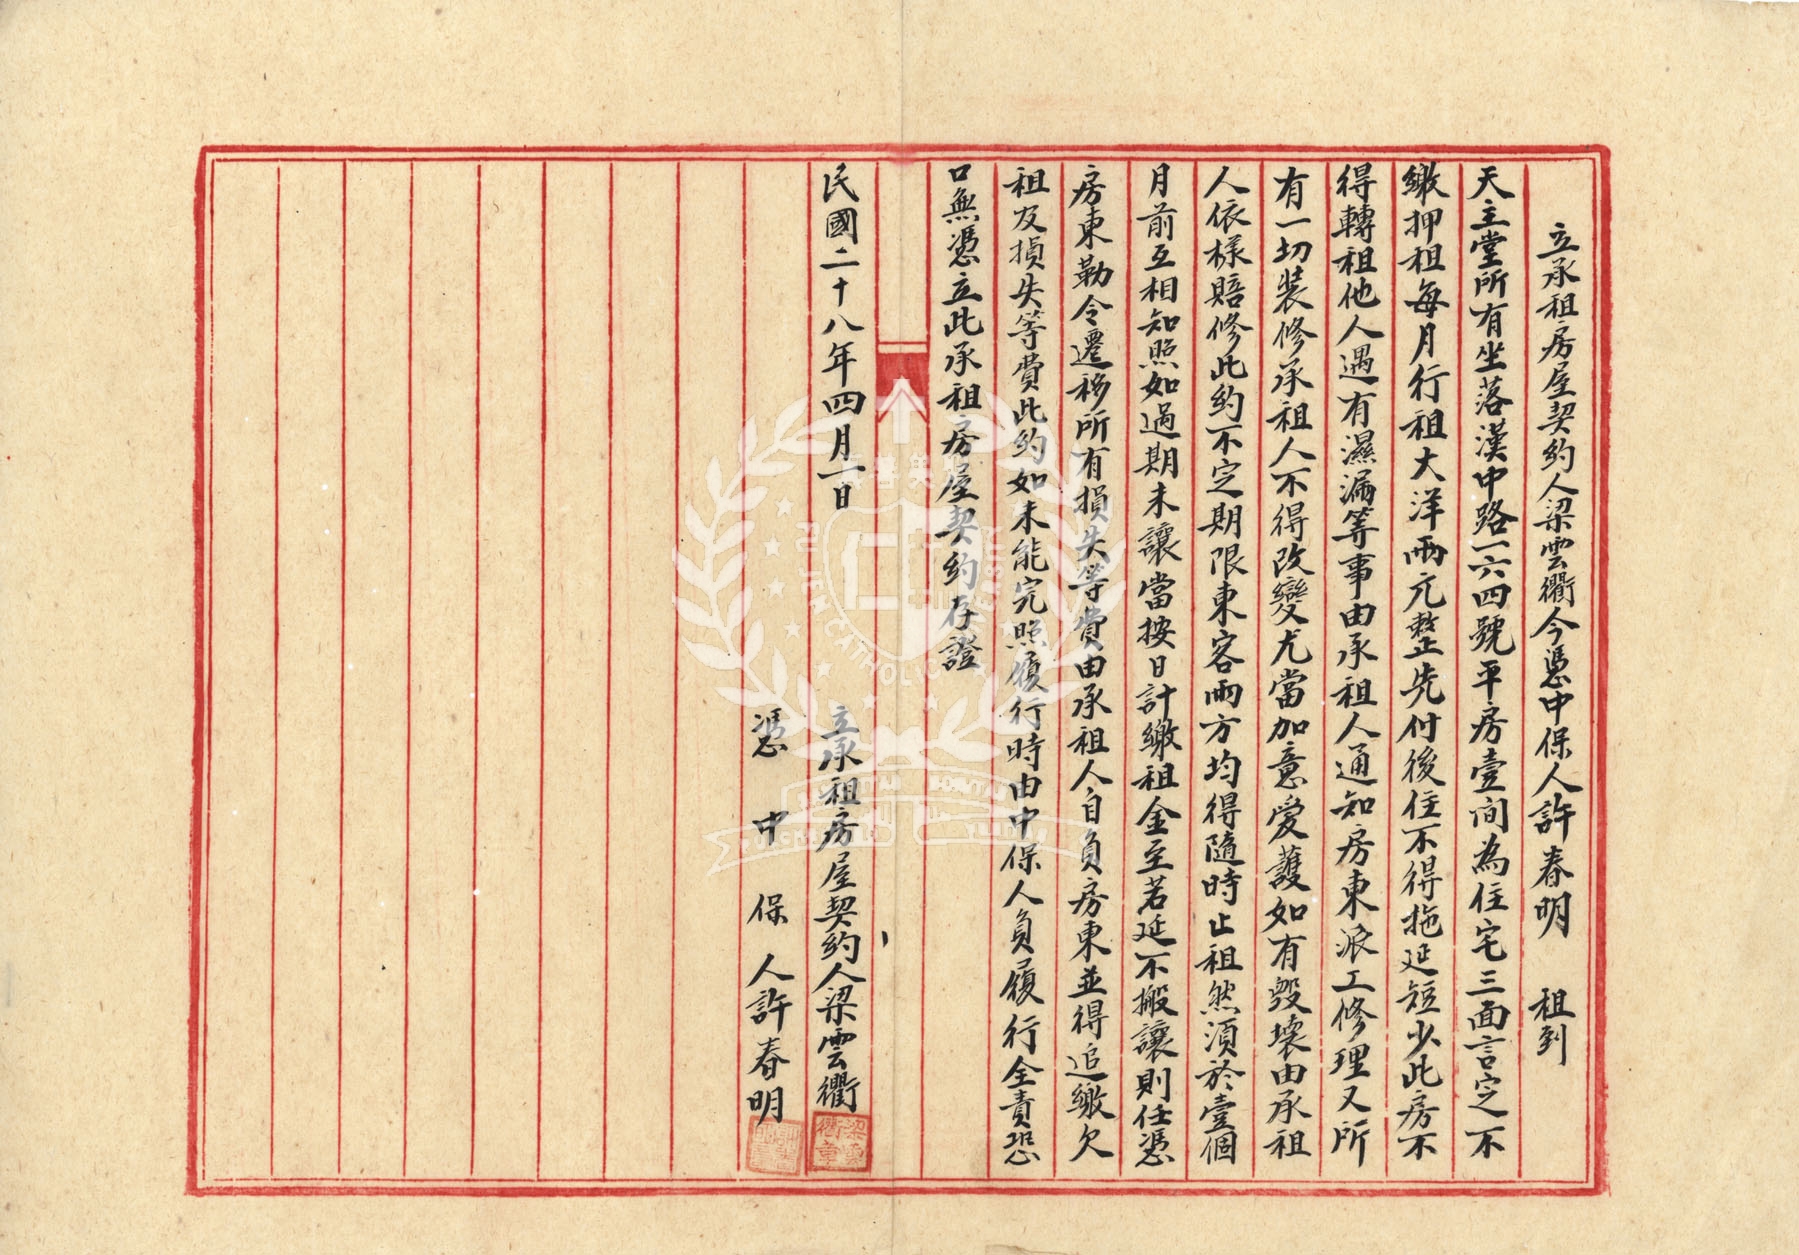 立承租房屋契約人梁雲衢今憑中保人許春明　租到
天主堂所有坐落漢中路一六四號平房壹間為住宅三面言定不
繳押租每月行租大洋兩元整先付後住不得拖延短少此房不
得轉租他人遇有濕漏等事由承租人通知房東派工修理又所
有一切裝修承租人不得改變尤當加意愛護如有毀壞由承租
人依樣賠修此約不定期限東客兩方均得隨時止租然須於壹個
月前互相知照如過期未讓當按日計繳租金至若延不搬讓則任憑
房東勒令遷移所有損失等費由承租人自負房東並得追繳欠
租及損失等費此約如未能完照履行時由中保人負履行全責恐
口無憑立此承租房屋契約存證
民國二十八年四月一日
立承租房屋契約人梁雲衢
梁雲衢章
憑　中　保　人許春明
FU JEN CATHOLIC